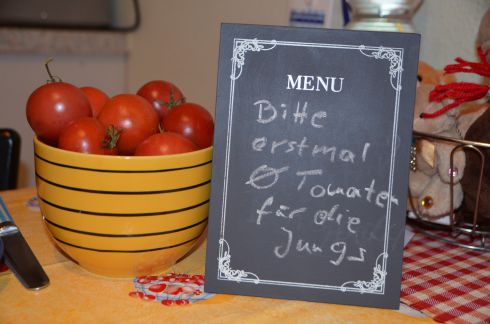 MENU
Bitte
erstmal
Ø Tomaten
für die
Jungs